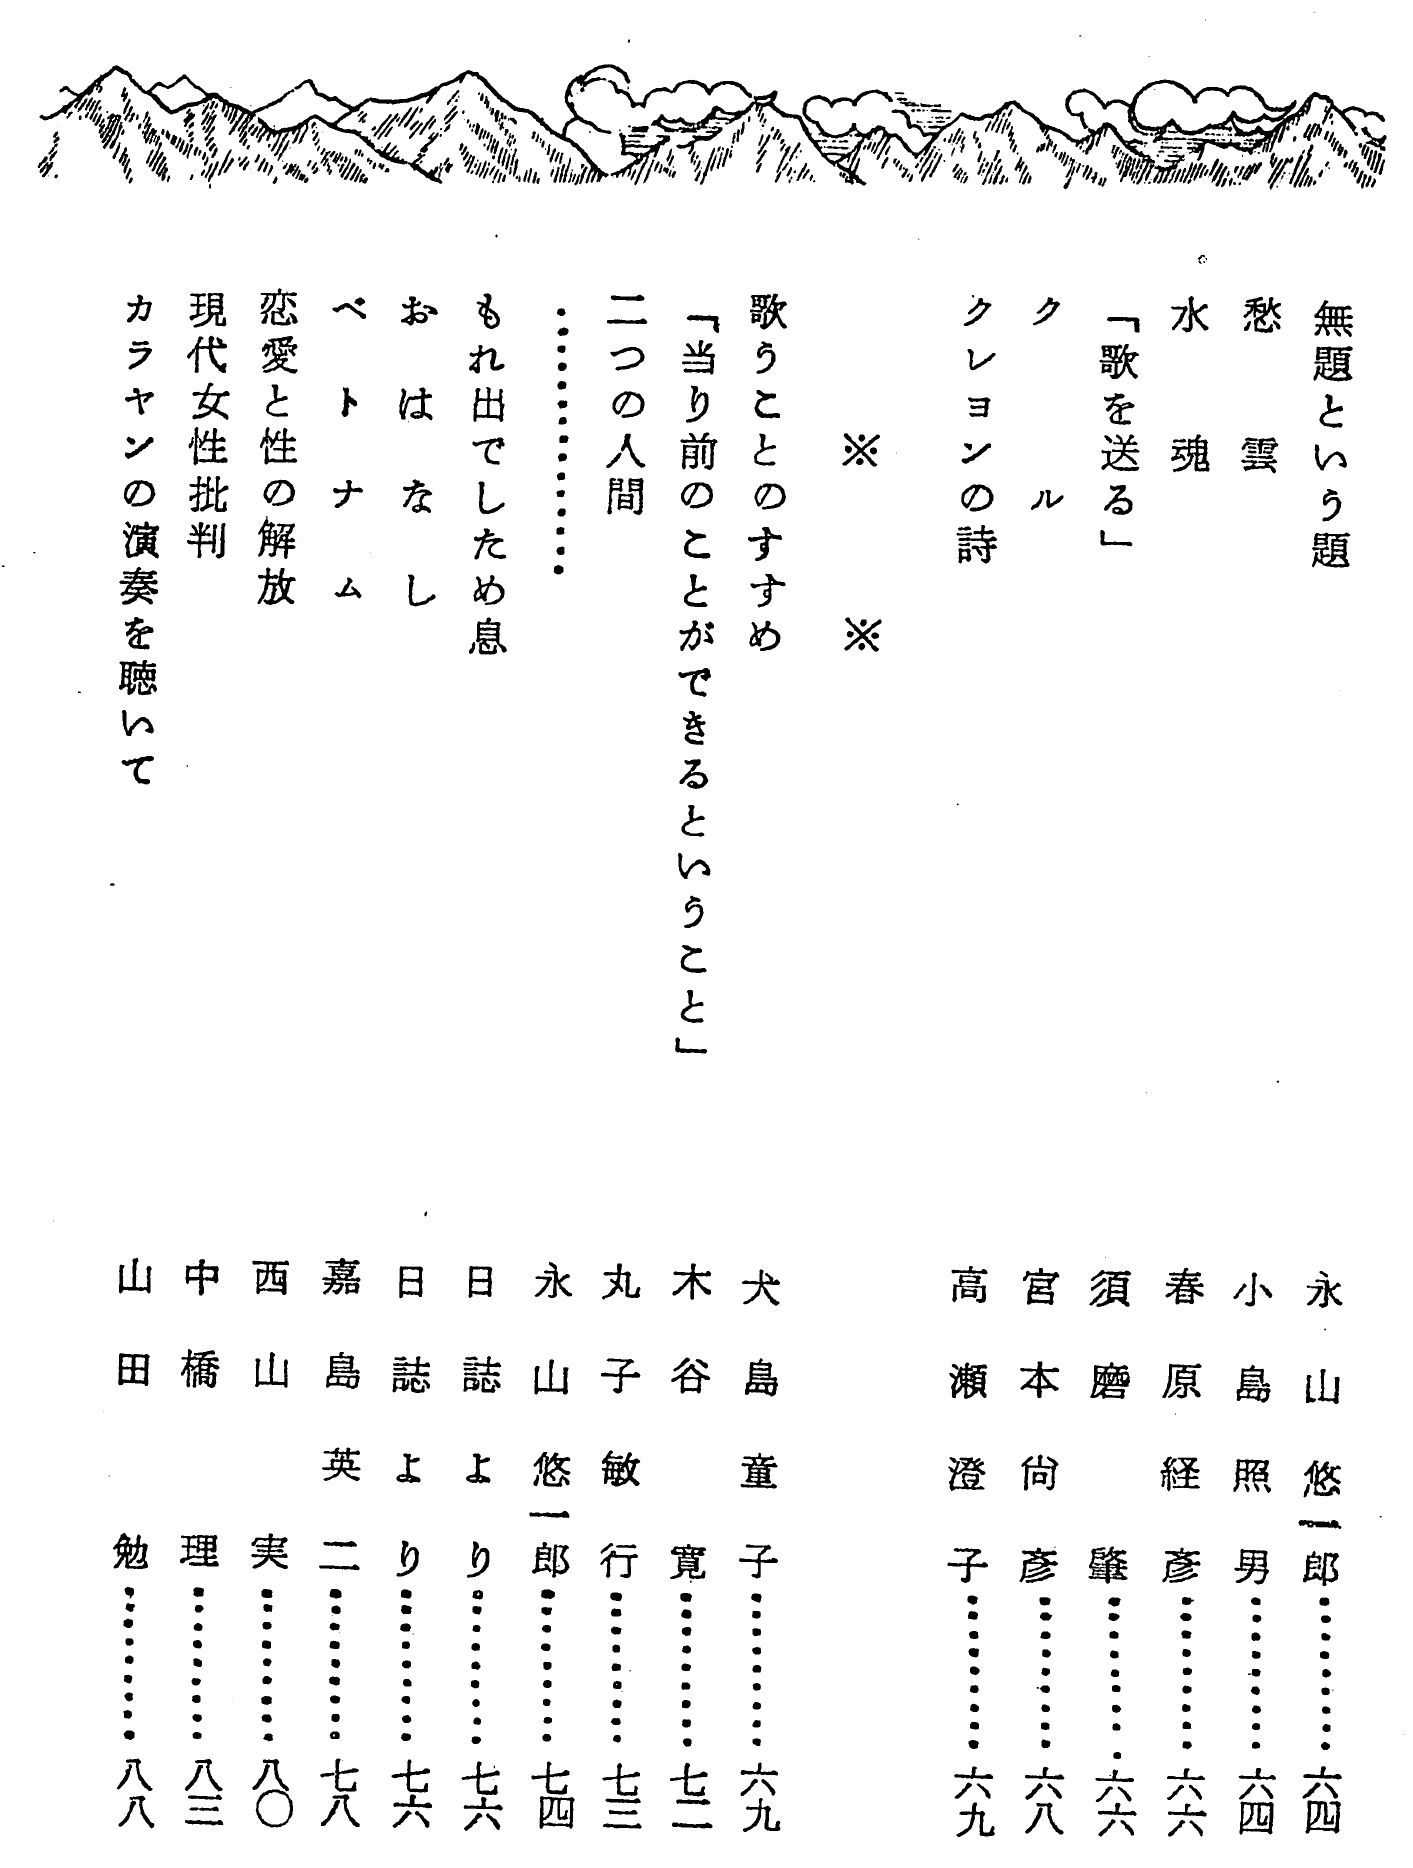 無題という題　永山悠一郎…………六四
愁雲　小島照男…………六四
水魂　春原経彦…………六六
「歌を送る」　須磨肇…………六六
クル　宮本尙彦…………六八
クレヨンの詩　高瀬澄子…………六九
※　※
歌うことのすすめ　犬島童子…………六九
「当り前のことができるということ」　木谷寛…………七二
二つの人間　丸子敏行…………七三
…………　永山悠一郎…………七四
もれ出でしため息　日誌より…………七六
おはなし　日誌より…………七六
ベトナム　嘉島英二…………七八
恋愛と性の解放　西山実…………八〇
現代女性批判　中橋理…………八三
カラヤンの演奏を聴いて　山田勉…………八八